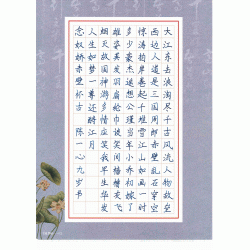 大江东去浪淘尽千古风流人物故垒
西边人道是三国周郎赤壁乱石穿空
惊涛拍岸卷起千堆雪江山如画一时
多少豪杰遥想公瑾当年小乔初嫁了
雄姿英发羽扇纶巾谈笑间樯橹灰飞
烟灭故国神游多情应笑我早生华发
人生如梦一尊还酹江月
念奴娇赤壁怀古 陈一心九岁书